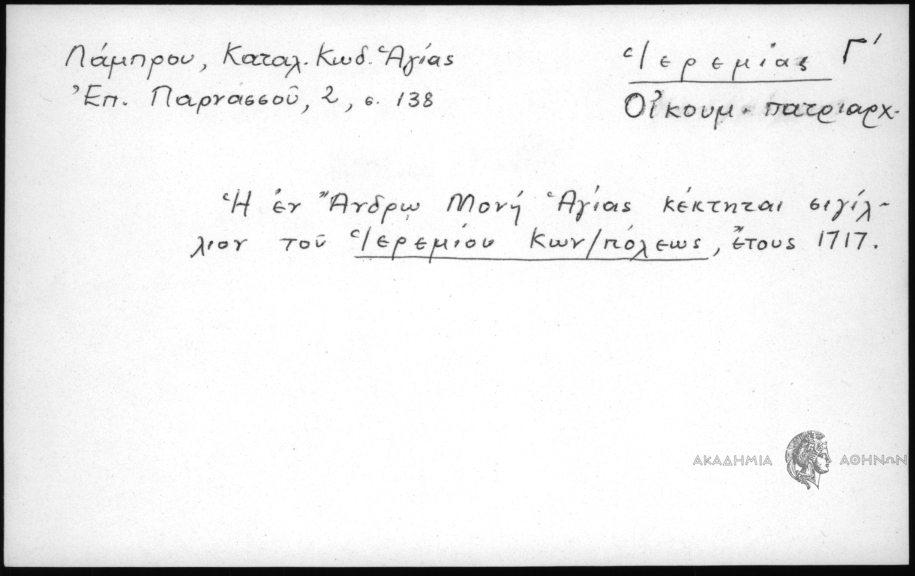 Λάμπρου, Καταλ. Κωδ. Ἁγίας
Ἐπ. Παρνασσοῦ, 2, σ. 138
Ἱερεμίας Γ'
Οἰκουμ. πατριαρχ.
Ἡ ἐν Ἄνδρῳ Μονή Ἁγίας κέκτηται σιγίλ-
λιον τοῦ Ἱερεμίου Κων/πόλεως, ἔτους 1717.
ΑΚΑΔΗΜΙΑ ΑΘΗΝΩΝ